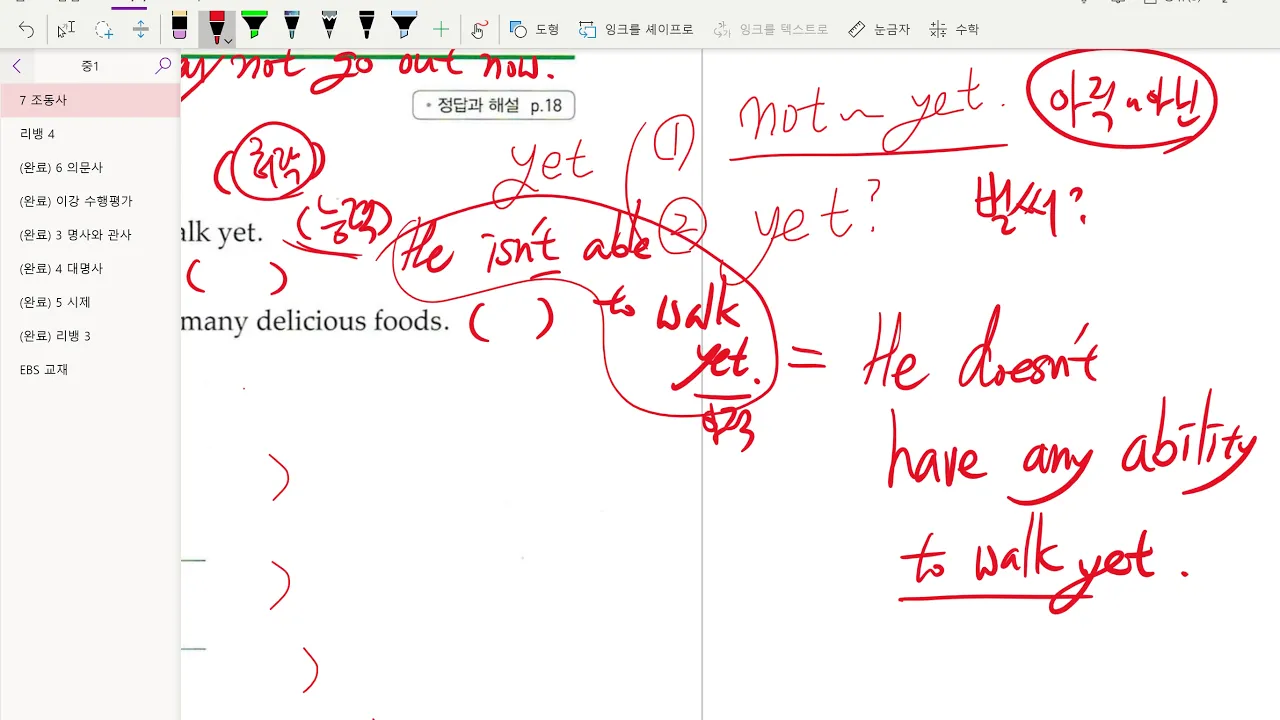 도형
잉크를 셰이프로
잉크를 텍스트로
눈금자
수학
중1
7 조동사
리뱅 4
(완료) 6 의문사
(완료) 이강 수행평가
(완료) 3 명사와 관사
(완료) 4 대명사
(완료) 5 시제
(완료) 리뱅 3
EBS 교재
ay not go out now.
• 정답과 해설 p.18
(허락)
yet
①
not ~ yet.
아직 ~ 아닌
②
yet?
벌써?
alk yet.
(능력)
He isn't able
to walk
yet.
아직
( )
many delicious foods.
( )
= He doesn't
have any ability
to walk yet.
)
)
)